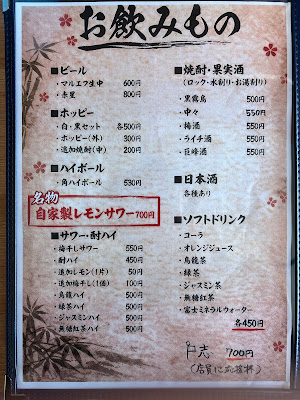 お飲みもの
■ビール
・マルエフ生中 600円
・赤星 800円
■ホッピー
・白・黒セット 各500円
・ホッピー(外) 300円
・追加焼酎(中) 200円
■ハイボール
・角ハイボール 530円
名物
自家製レモンサワー 700円
■サワー・酎ハイ
・梅干しサワー 550円
・酎ハイ 450円
・追加レモン(1片) 50円
・追加梅干し(1個) 100円
・烏龍ハイ 500円
・緑茶ハイ 500円
・ジャスミンハイ 500円
・無糖紅茶ハイ 500円
■焼酎・果実酒
(ロック・水割り・お湯割り)
・黒霧島 500円
・中々 550円
・梅酒 550円
・ライチ酒 550円
・巨峰酒 550円
■日本酒
各種あり
■ソフトドリンク
・コーラ
・オレンジジュース
・烏龍茶
・緑茶
・ジャスミン茶
・無糖紅茶
・富士ミネラルウォーター
各450円
寸志 700円
(店員に応援杯)